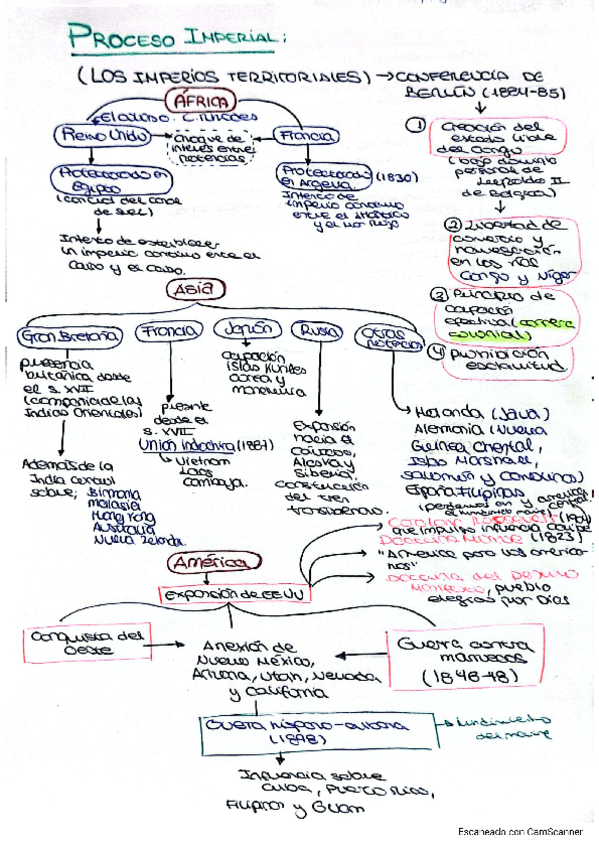 PROCESO IMPERIAL:
(LOS IMPERIOS TERRITORIALES) → CONFERENCIA DE
BERLÍN (1884-85)
ÁFRICA
Reino Unido
choque de
interés entre
potencias
Francia
Protectorado en
Egipto
(control del canal
de Suez)
Intento de establecer
un imperio continuo entre el
Cabo y el Cairo.
Protectorado (1830)
en Argelia.
Intento de
imperio continuo
entre el Atlántico
y el Mar Rojo
① Creación del
estado libre
del Congo
(bajo dominio
personal de
Leopoldo II
de Bélgica)
② Libertad de
comercio y
navegación
en los ríos
Congo y Níger
③ Principio de
ocupación
efectiva (carrera
colonial)
④ Prohibición
esclavitud.
Asia
Gran Bretaña
Francia
Japón
Rusia
Otras
potencias
presencia
británica desde
el S. XVII
(compañía de las
Indias Orientales)
Además de la
India control
sobre; Birmania
Malasia
Hong Kong
Australia
Nueva Zelanda.
presente
desde el
S. XVII
Unión Indochina (1887)
↳ Vietnam
Laos
Camboya.
ocupación
islas Kuriles
Corea y
Manchuria
Expansión
hacia el
Cáucaso,
Alaska y
Siberia.
construcción
del tren
transiberiano.
Holanda (Java)
Alemania (Nueva
Guinea Oriental,
Islas Marshall,
Salomon y Carolinas)
España: Filipinas
(1904)
que impulsó influencia Caribe
Doctrina Monroe (1823)
"América para los america-
nos"
Doctrina del Destino
Manifiesto, pueblo
elegido por Dios
América
Expansión de EEUU
Conquista del
Oeste
Anexión de
Nuevo México,
Arizona, Utah, Nevada
y California
Guerra contra
mexicanos
(1846-48)
Guerra hispano-cubana
(1898)
→ hundimiento
del maine
Influencia sobre
Cuba, Puerto Rico,
Filipinas y Guam
Escaneado con CamScanner